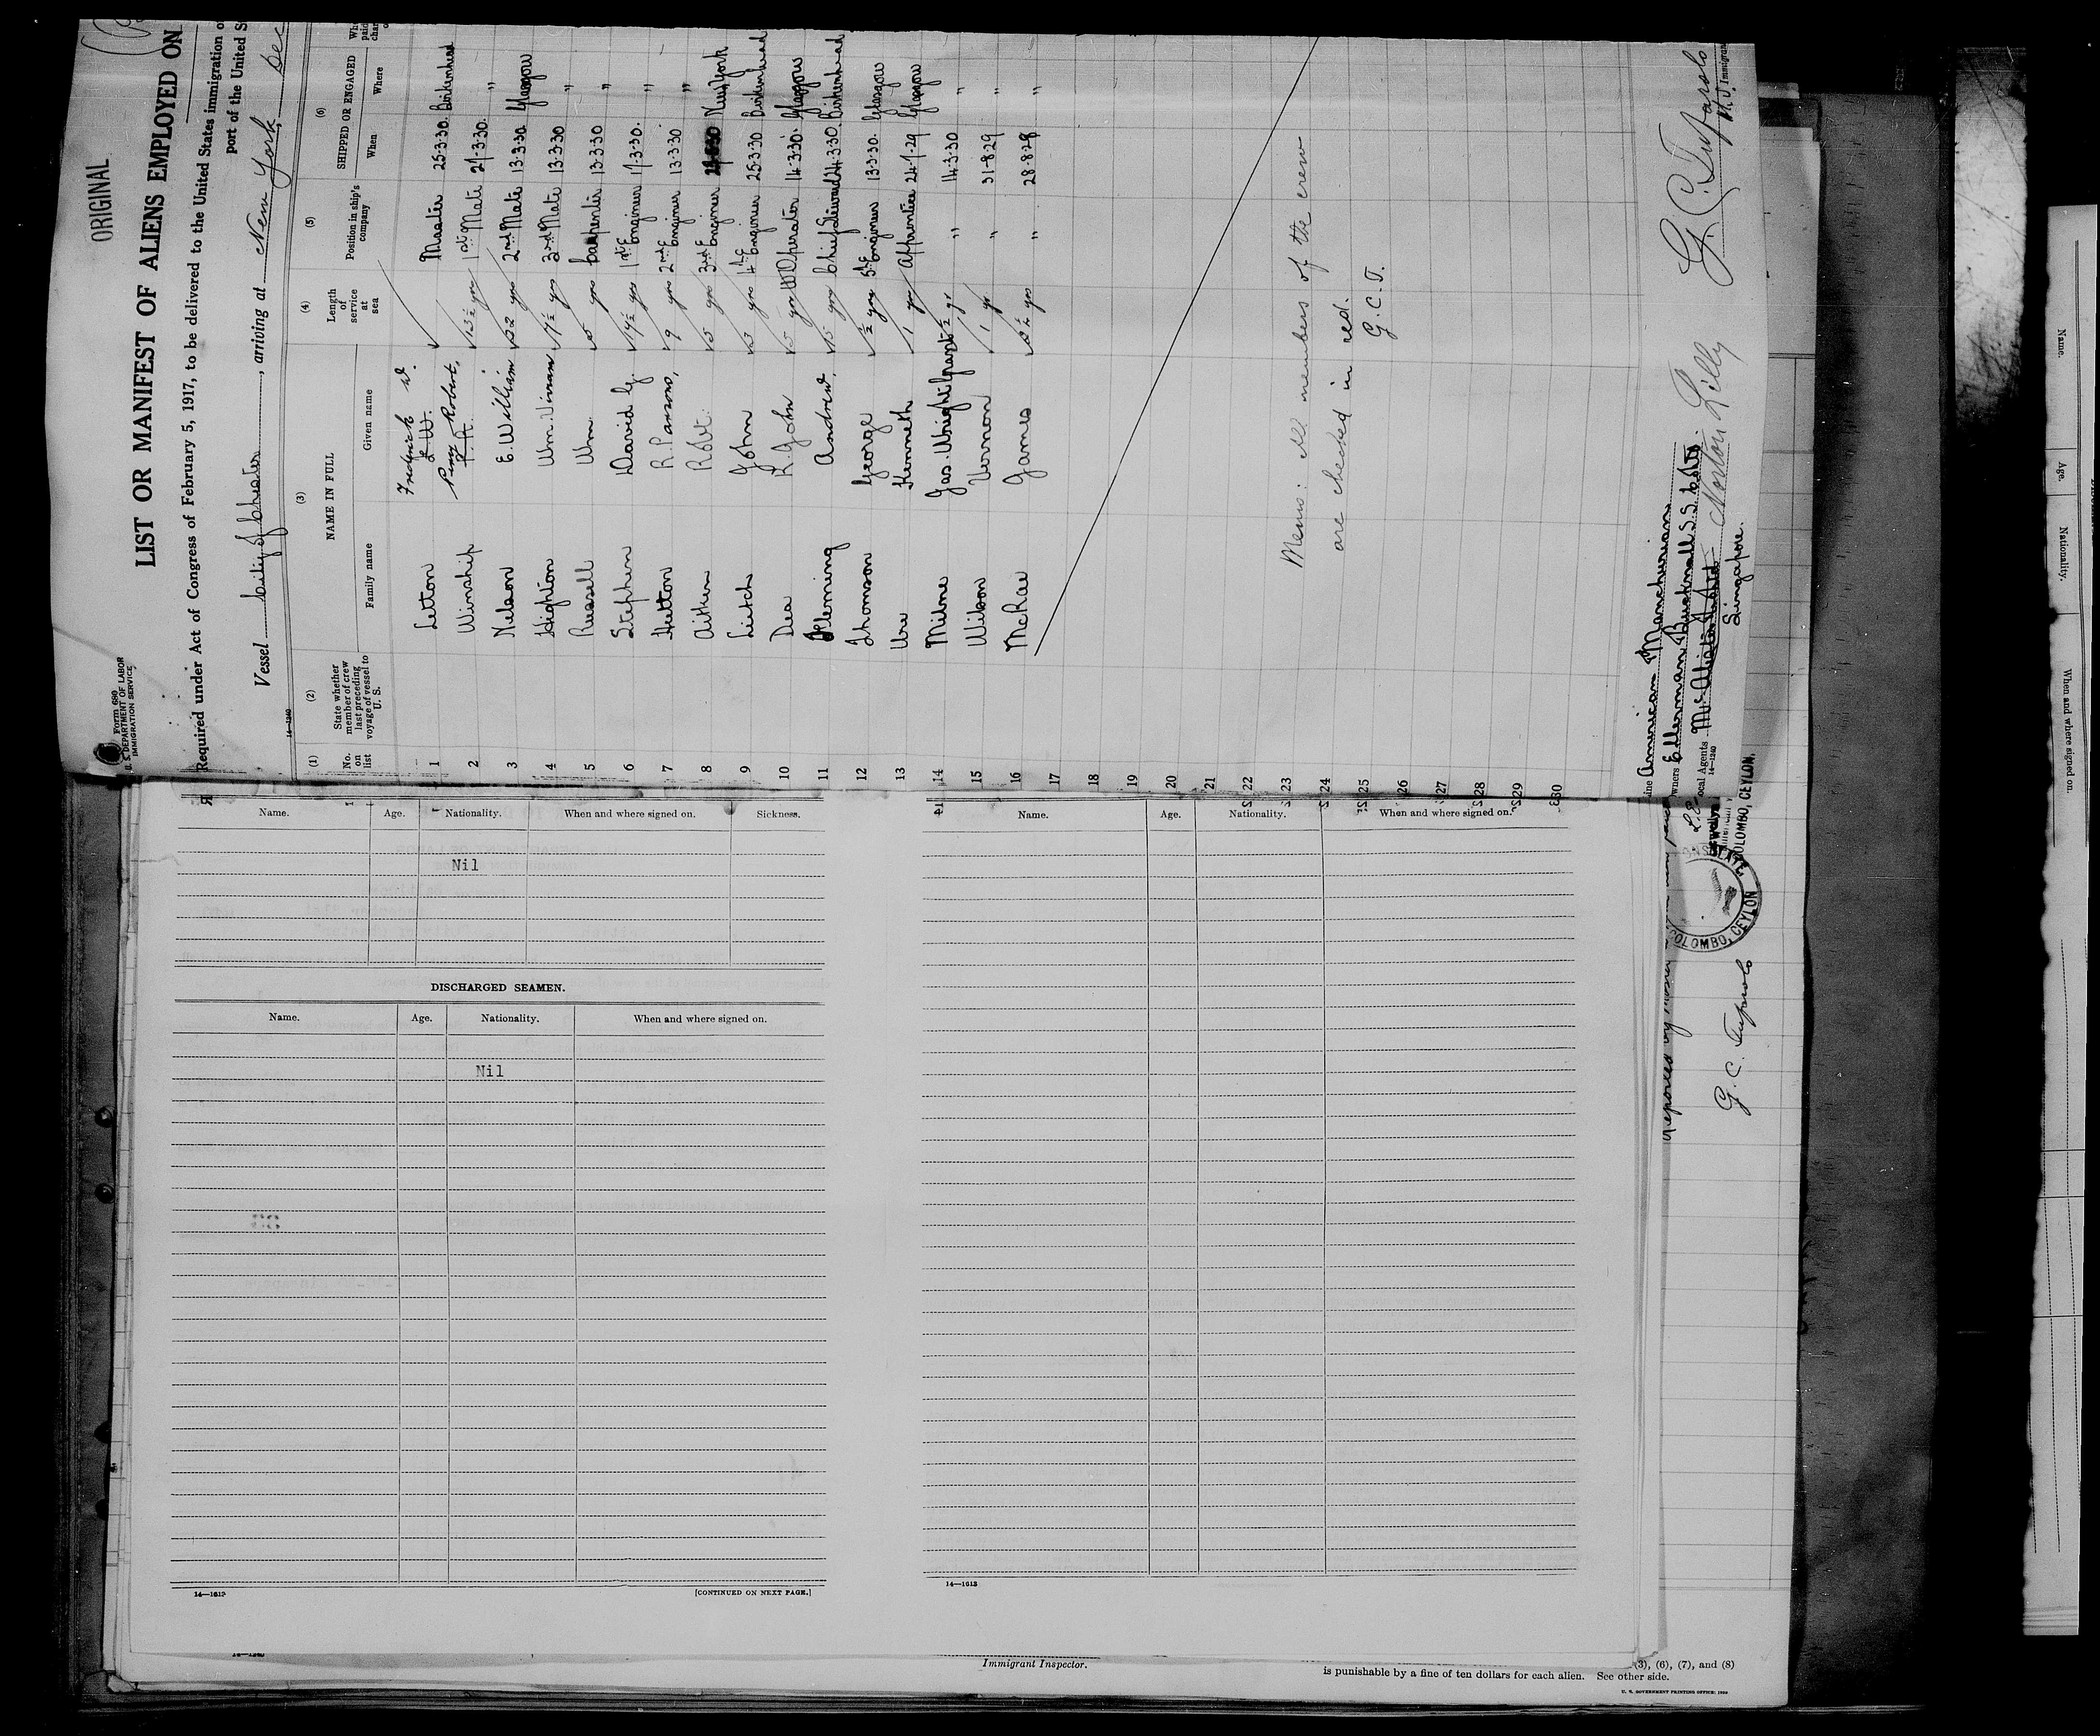 ORIGINAL
Form 680
U. S. DEPARTMENT OF LABOR
IMMIGRATION SERVICE
LIST OR MANIFEST OF ALIENS EMPLOYED ON
Required under Act of Congress of February 5, 1917, to be delivered to the United States immigration
port of the United S
Vessel City of Chester, arriving at New York, Dec
14—1240
(1) (2) (3) (4) (5) (6)
No. on list
State whether member of crew last preceding voyage of vessel to U. S.
NAME IN FULL
Family name Given name
Length of service at sea
Position in ship's company
SHIPPED OR ENGAGED
When Where
1 Letton Frederick W. Master 25-3-30 Birkenhead
2 Winship Percy Robert, 13½ yrs 1st Mate 27-3-30 "
3 Nelson E. William 22 yrs 2nd Mate 13-3-30 Glasgow
4 Highton Wm. Vivian 7½ yrs 3rd Mate 13-3-30 "
5 Russell Wm 5 yrs Carpenter 13-3-30 "
6 Stephen David G. 17½ yrs 1st Engineer 17-3-30 "
7 Hutton R. Parsons, 9 yrs 2nd Engineer 13-3-30 "
8 Aitken Robt. 5 yrs 3rd Engineer New York
9 Leitch John 3 yrs 4th Engineer 25-3-30 Birkenhead
10 Dea R. John 5 yrs W Operator 14-3-30 Glasgow
11 Fleming Andrew. 15 yrs Chief Steward 24-3-30 Birkenhead
12 Thomson George ½ yrs 5th Engineer 13-3-30 Glasgow
13 Ure Kenneth 1 yr Apprentice 24-7-29 Glasgow
14 Milne Jas. Wright Grant ½ yr " 14-3-30 "
15 Wilson Vernon 1 yr " 31-8-29 "
16 McRae James 2½ yrs " 28-8-28 "
17
18
19
20
21
22
23
24
25
26
27
28
29
30
Memo: All members of the crew
are checked in red.
G. C. T.
American Manchurian
Ellerman Bucknall S.S. Co Ltd.
ocal Agents Norton Lilly
14—1240
Singapore.
COLOMBO, CEYLON.
COLOMBO, CEYLON
G. C.
Name. Age. Nationality. When and where signed on. Sickness.
Nil
DISCHARGED SEAMEN.
Name. Age. Nationality. When and where signed on.
Nil
14—1613
[CONTINUED ON NEXT PAGE.]
Name. Age. Nationality. When and where signed on.
14—1613
Immigrant Inspector.
(3), (6), (7), and (8)
is punishable by a fine of ten dollars for each alien. See other side.
U. S. GOVERNMENT PRINTING OFFICE:
Name. Age. Nationality. When and where signed on.